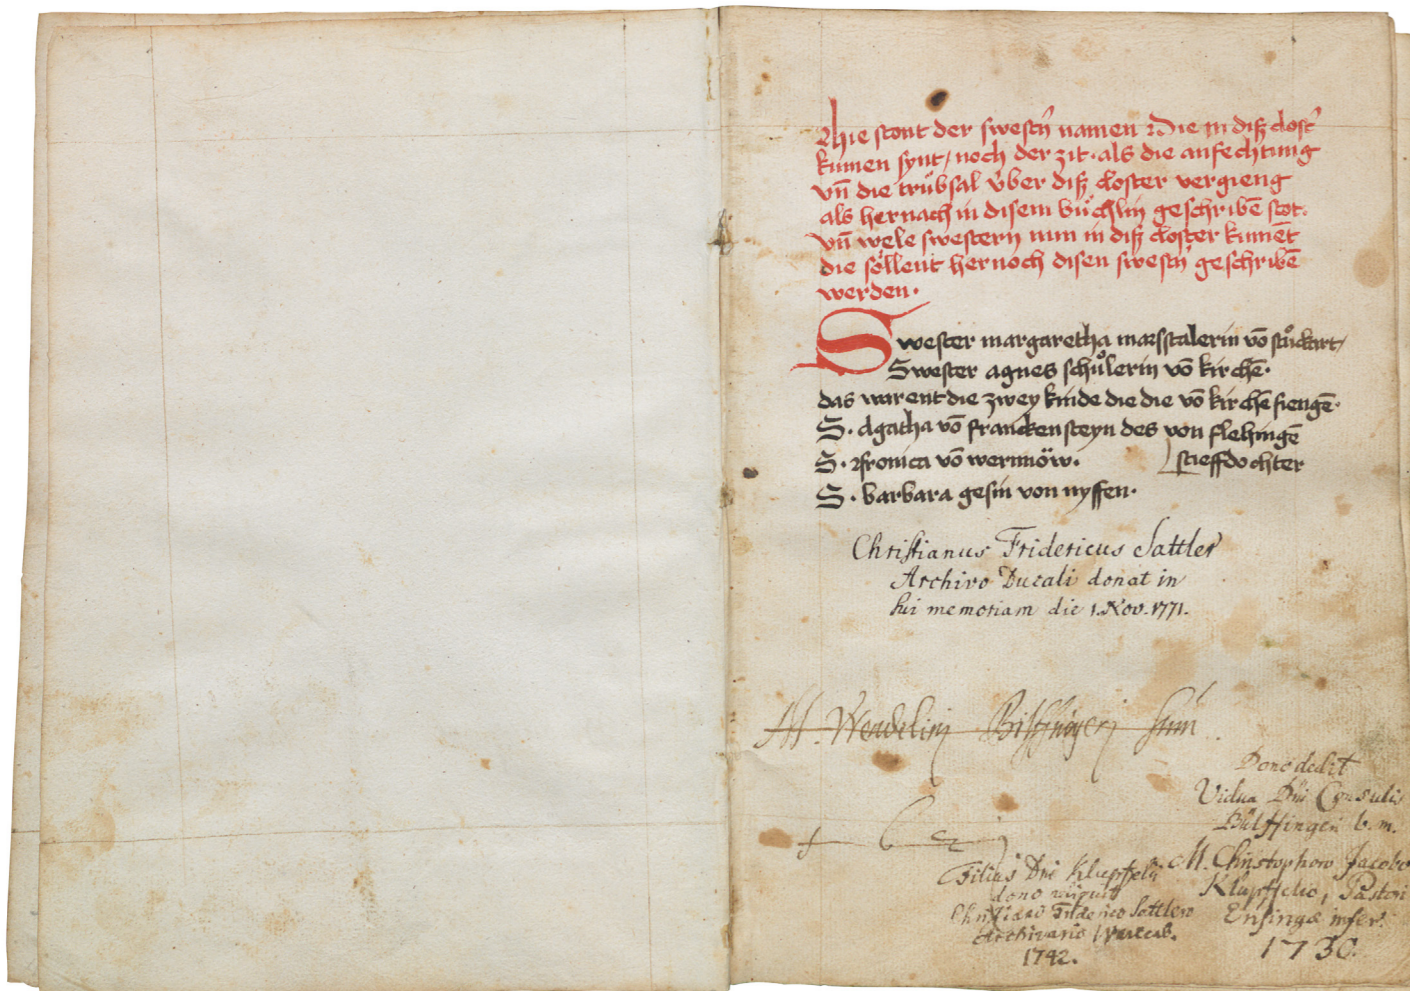 Hie stont der swestn̄ namen Die in diß clost̄
kumen synt / noch der zit · als die anfechtung
vn̄ die trübsal über diß closter vergieng
als hernach in disem büchlin geschribē stot ·
vn̄ wele swestern nun in diß closter kumēt
die söllent hernoch disen swestn̄ geschribē
werden ·
Swester margaretha marsstalerin vō stůckart /
Swester agnes schůlerin vō kirchē ·
das warent die zwey kinde die die vō kirchē fiengē ·
S · Agatha vō franckensteyn des von flehingē
stieffdochter
S · vfronica vō wernnöw ·
S · barbara gesin von nyffen ·
Christianus Fridericus Sattler
Archivo Ducali donat in
sui memoriam die 1. Nov. 1771.
M. Wendelinj Bilffingerj sum
Dono dedit
Vidua Dni Consulis
Bülffingeri b. m.
M. Christophoro Jacobo
Klupffelio, Pastori
Ensingæ infer.
1730.
Filius Dni Klupffelii
dono
Christiano Friderico Sattlero
Archivario
1742.